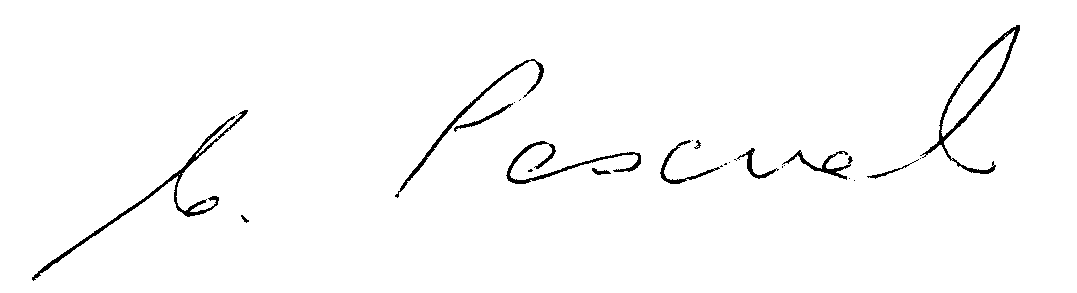 C. Pascual